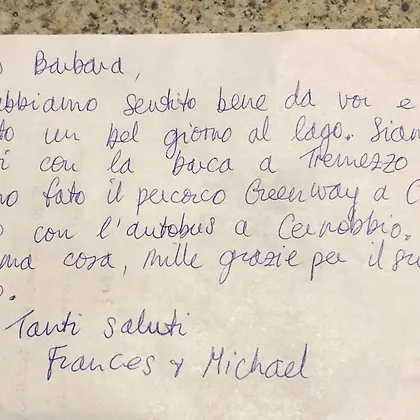 Barbara,
abbiamo sentito bene da voi e
un bel giorno al lago. Siam
con la barca a Tremezzo
fato il percorco Greenway a C
con l'autobus a Cernobbio.
ma cosa, mille grazie per il su
Tanti saluti
Frances & Michael